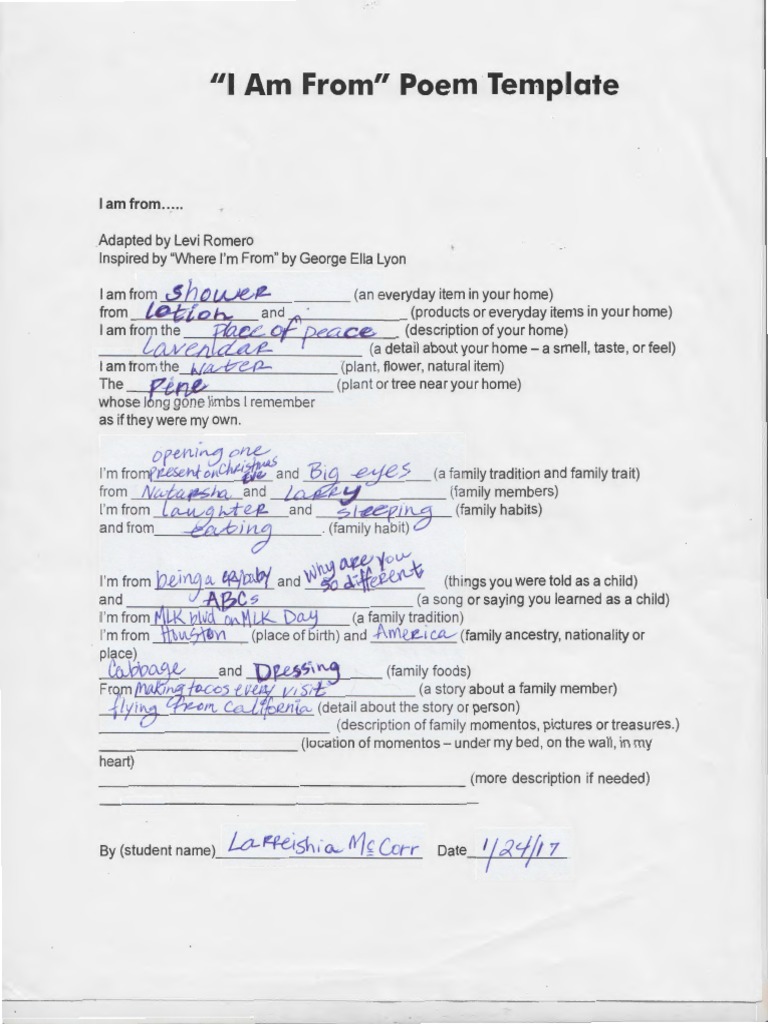 "I Am From" Poem Template
I am from.....
Adapted by Levi Romero
Inspired by "Where I'm From" by George Ella Lyon
I am from shower (an everyday item in your home)
from lotion and (products or everyday items in your home)
I am from the place of peace (description of your home)
Lavendar (a detail about your home – a smell, taste, or feel)
I am from the water (plant, flower, natural item)
The Pine (plant or tree near your home)
whose long gone limbs I remember
as if they were my own.
opening one
I'm from present on Christmas Eve and Big eyes (a family tradition and family trait)
from Natarsha and Larry (family members)
I'm from laughter and sleeping (family habits)
and from eating. (family habit)
I'm from being a crybaby and Why are you so different (things you were told as a child)
and ABCs (a song or saying you learned as a child)
I'm from MLK blvd on MLK Day (a family tradition)
I'm from Houston (place of birth) and America (family ancestry, nationality or
place)
Cabbage and Dressing (family foods)
From making tacos every visit (a story about a family member)
flying from California (detail about the story or person)
(description of family momentos, pictures or treasures.)
(location of momentos – under my bed, on the wall, in my
heart)
(more description if needed)
By (student name) Larreishia McCorr Date 1/24/17